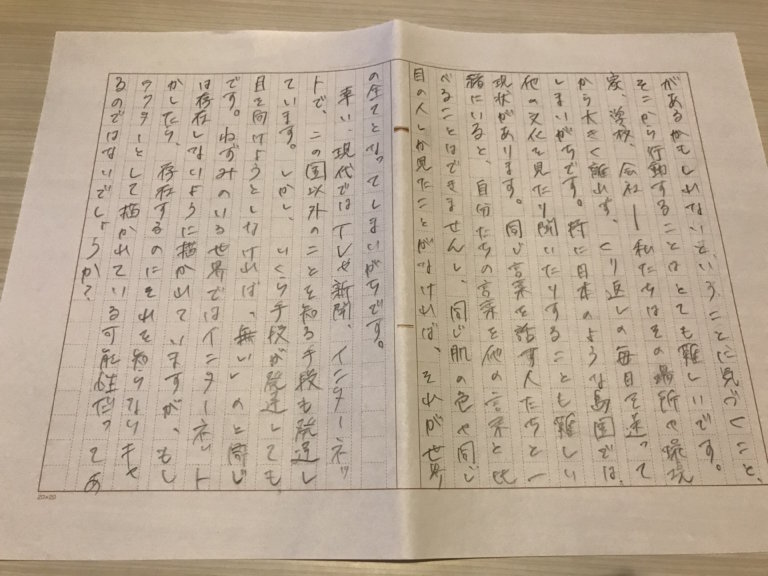 があるかもしれないということに気づくこと、
そこから行動することはとても難しいです。
家、学校、会社―私たちはその場所や環境
から大きく離れず、くり返しの毎日を送って
しまいがちです。特に日本のような島国では、
他の文化を見たり聞いたりすることも難しい
現状があります。同じ言葉を話す人たちと一
緒にいると、自分たちの言葉を他の言葉と比
べることはできませんし、同じ肌の色や同じ
目の人しか見たことがなければ、それが世界
の全てとなってしまいがちです。
幸い、現代ではTVや新聞、インターネッ
トで、この国以外のことを知る手段も発達し
ています。しかし、いくら手段が発達しても、
目を向けようとしなければ、「無い」のと同じ
です。ねずみのいる世界ではインターネット
は存在しないように描かれていますが、もし
かしたら、存在するのにそれを知らないキャ
ラクターとして描かれている可能性だってあ
るのではないでしょうか?
20×20